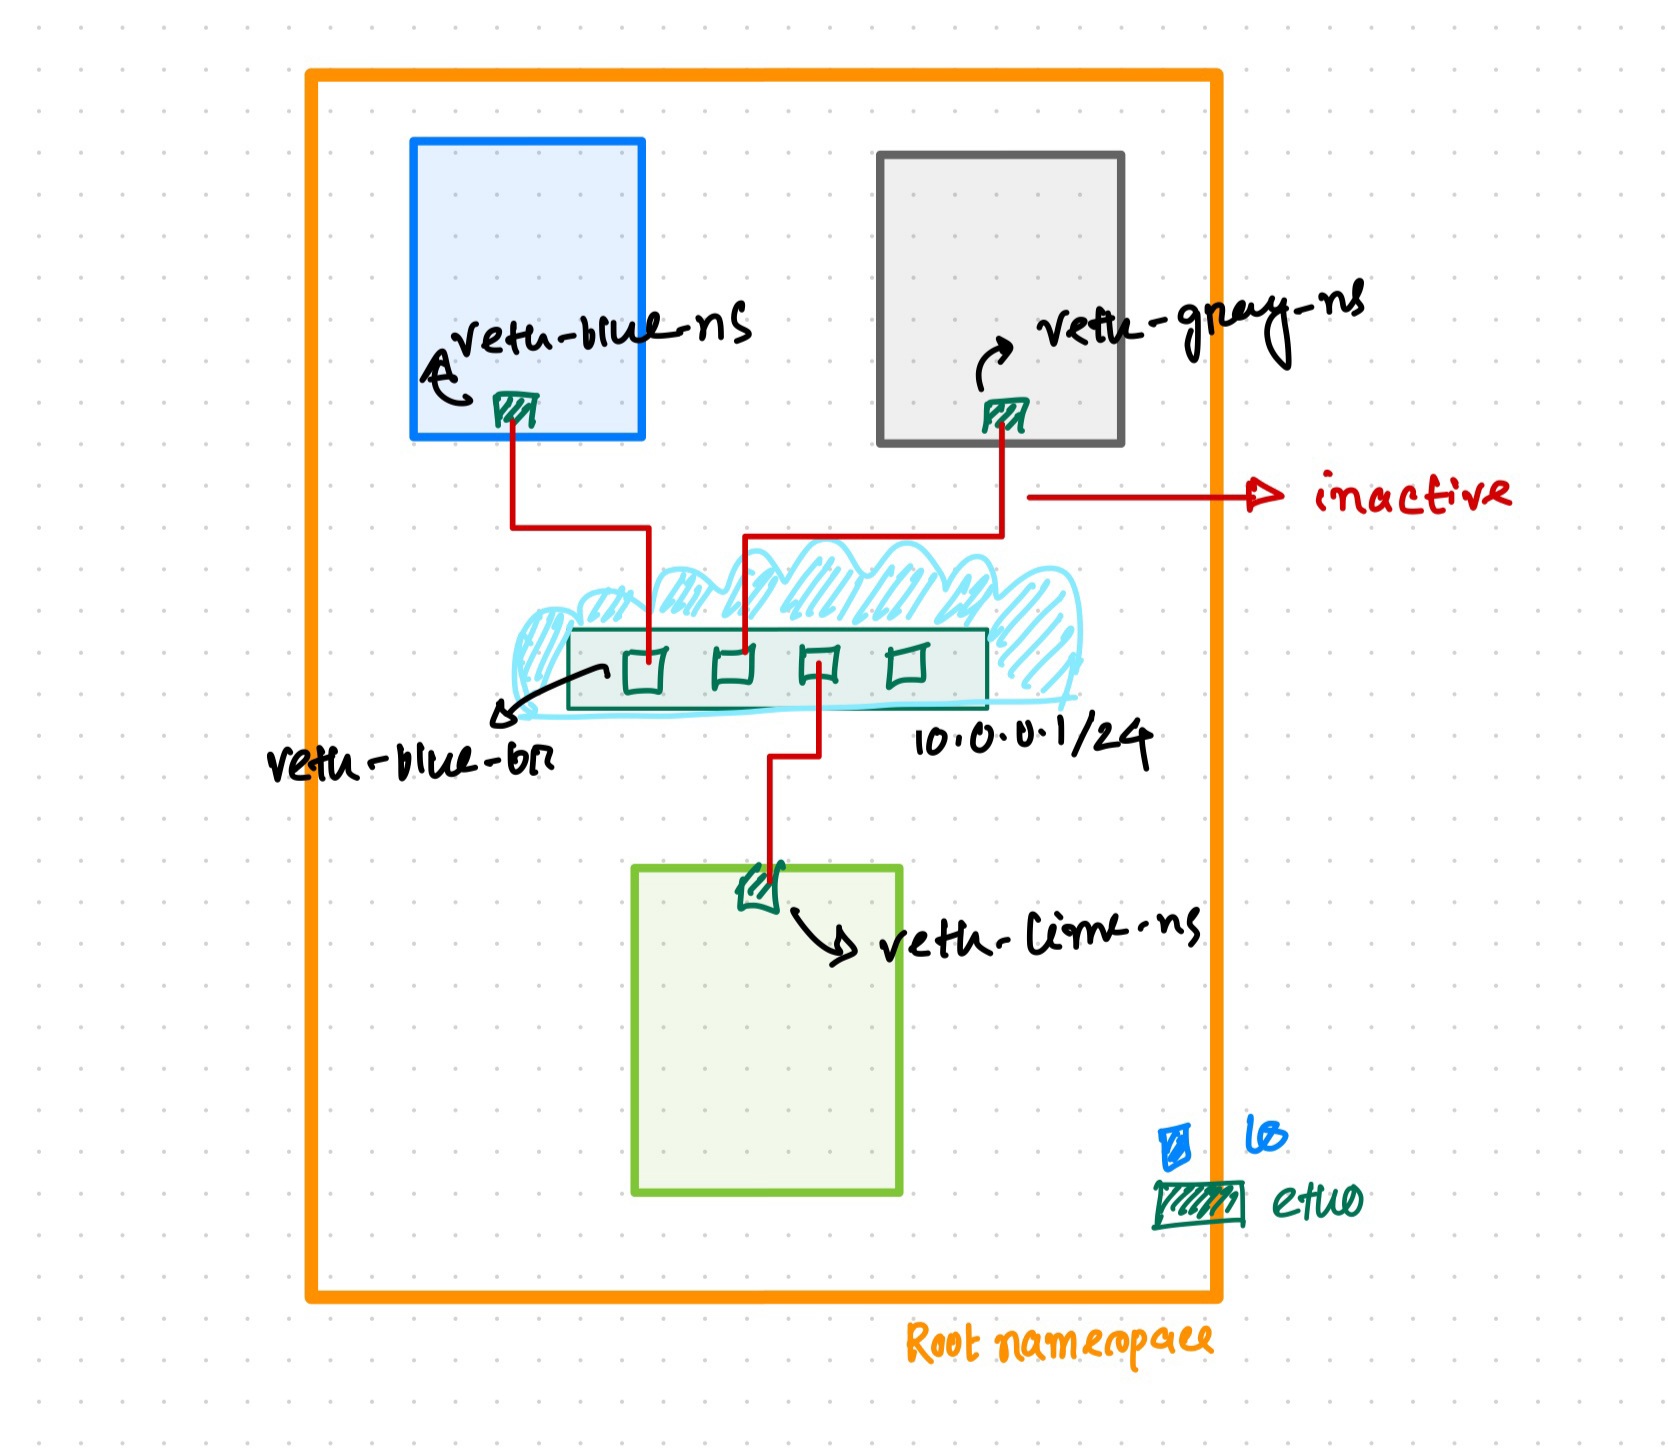 veth-blue-ns
veth-gray-ns
inactive
10.0.0.1/24
veth-blue-br
veth-lime-ns
lo
eth0
Root namespace